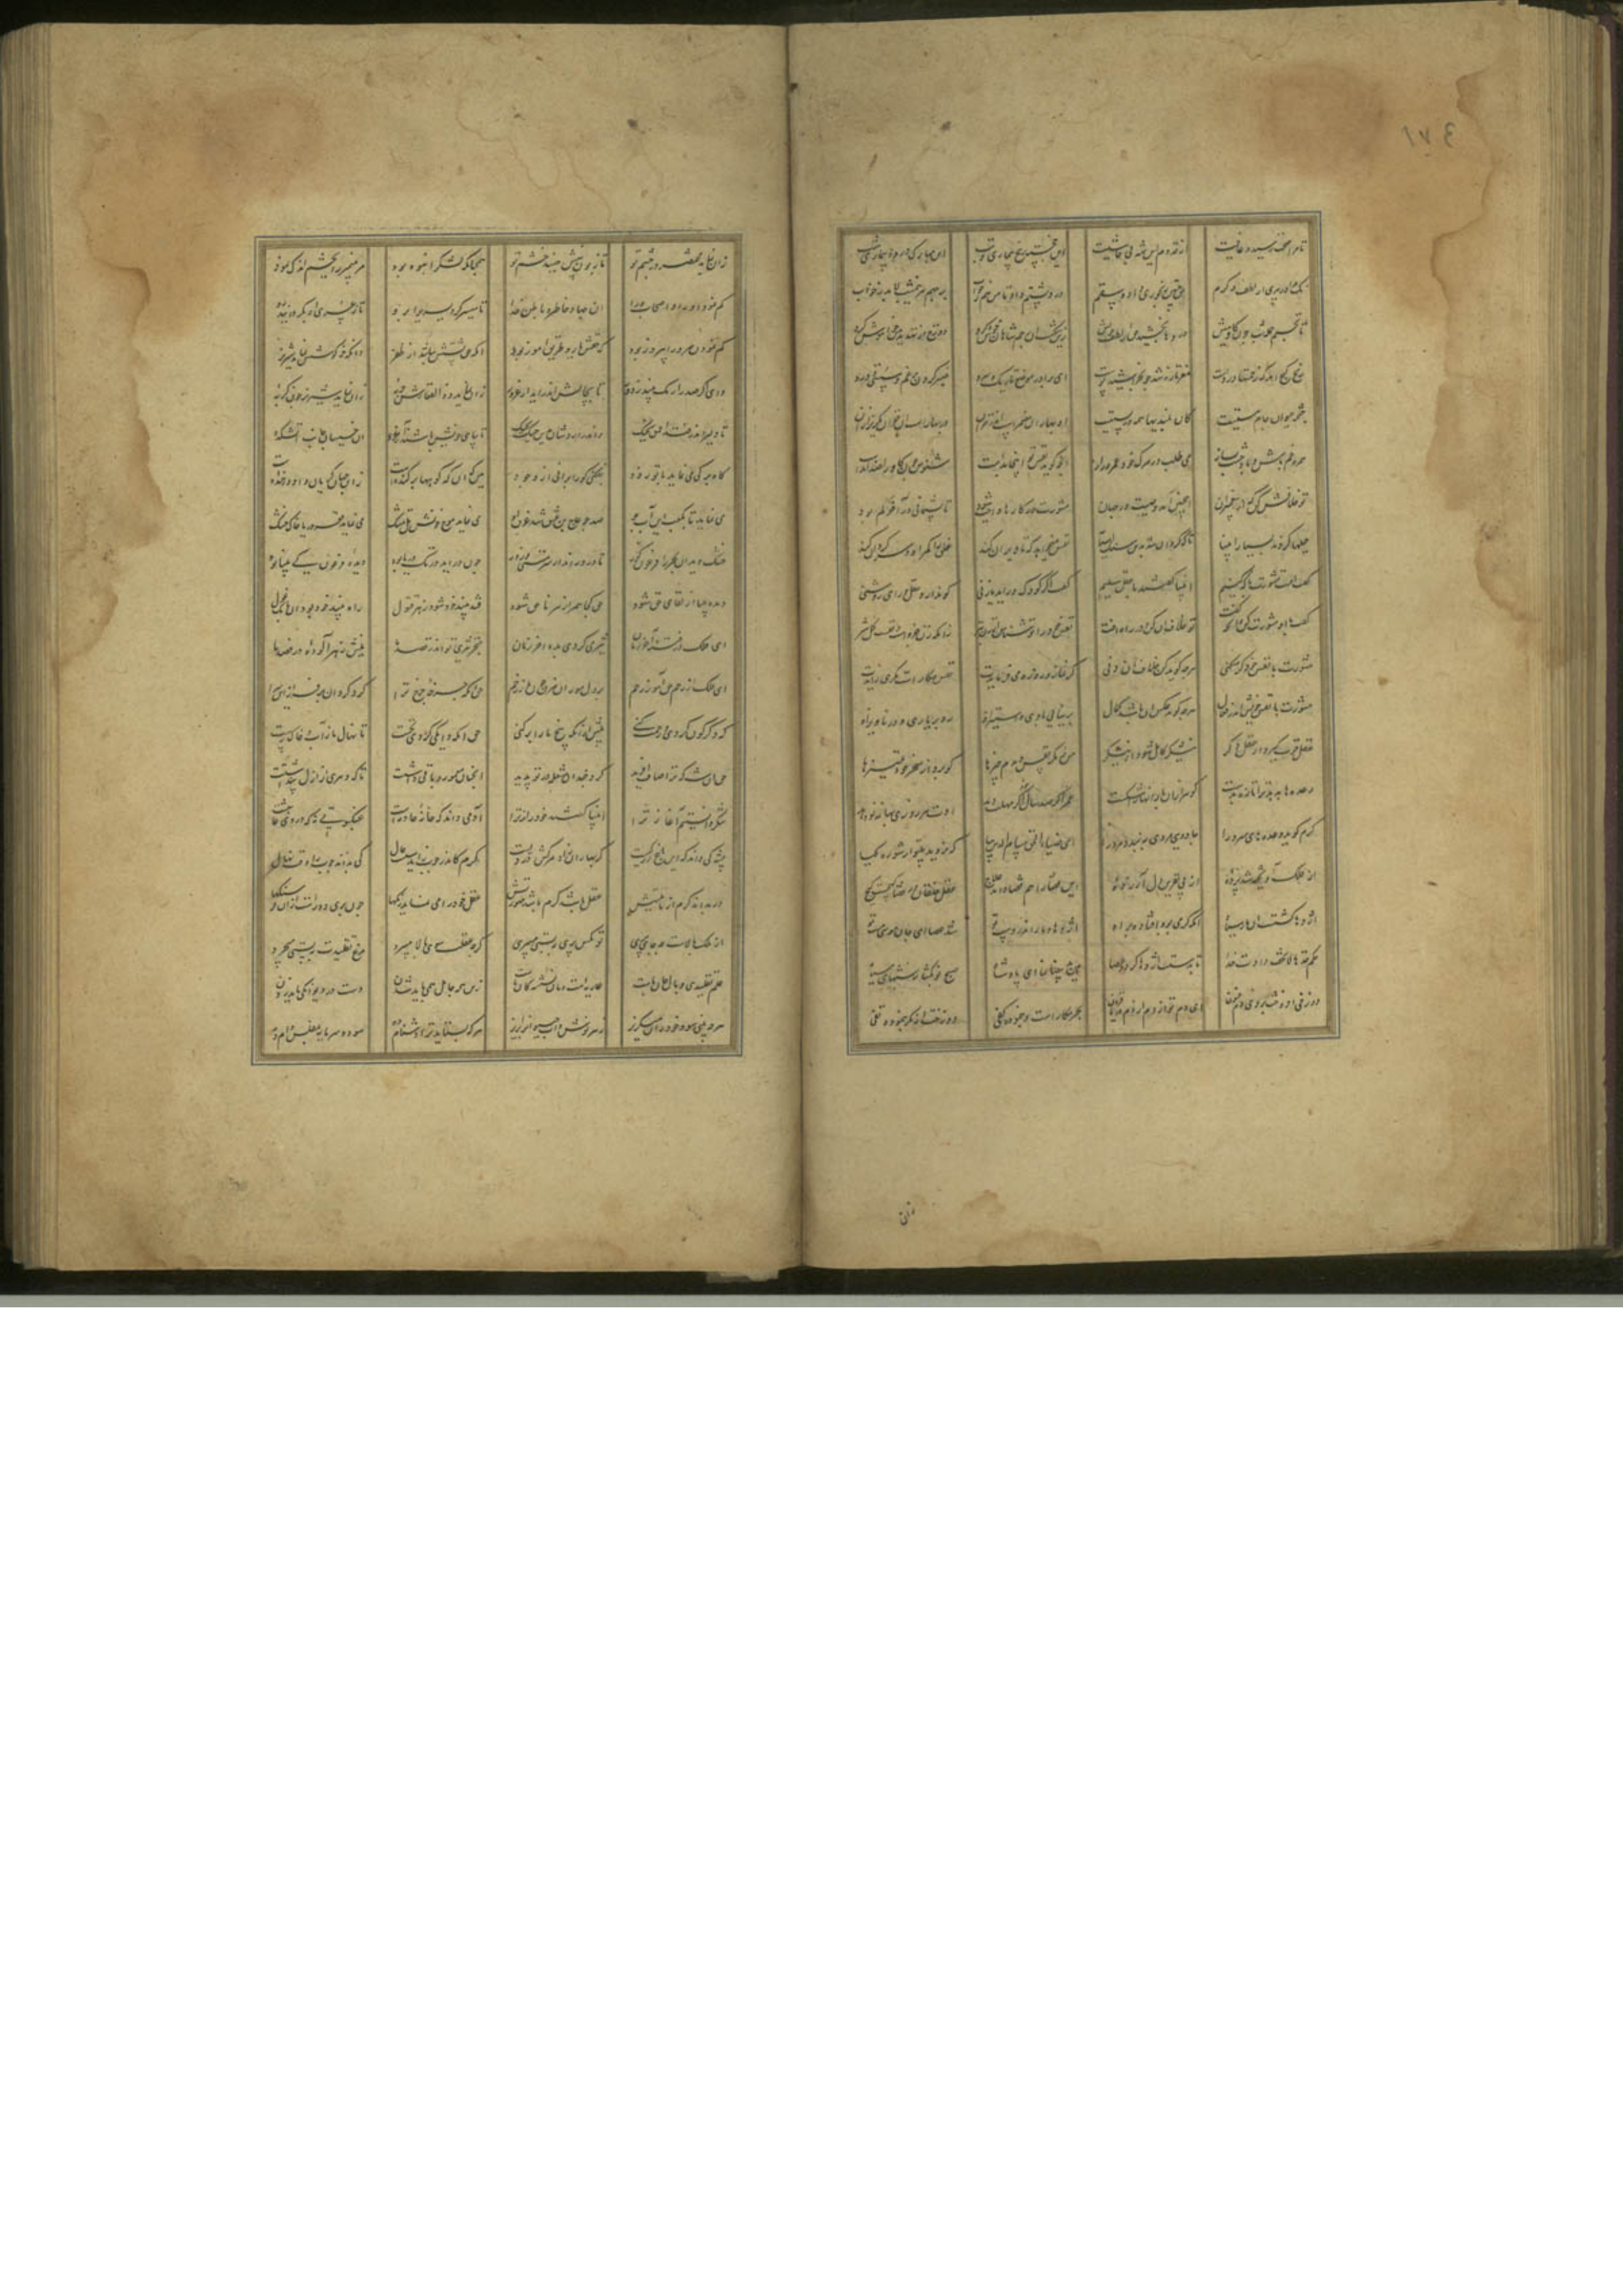 ۱۷۴
تا مرا صحت رسید و عافیت از قدوم این شه بی حاشیت ای خجسته رنج و بیماری و تب ای مبارک درد و بیداری شب
نک مرا در پیری از لطف و کرم حق چنین رنجوری داد و سقم درد پشتم داد تا من ز خواب بر جهم هر نیم شب لابد
تا نخسبم جمله شب چون گاومیش دردها بخشید حق از لطف خویش زین شکست آن رحم شاهان جوش کرد دوزخ از تهدید من خاموش کرد
رنج گنج آمد که رحمتها دروست مغز تازه شد چو بخراشید پوست ای برادر موضع تاریک و سرد صبر کردن بر غم و سستی و درد
چشمه حیوان و جام مستیست کان بلندیها همه در پستیست آن بهاران مضمرست اندر خزان در بهارست آن خزان مگریز از آن
همره غم باش و با وحشت بساز می طلب در مرگ خود عمر دراز آنچه گوید نفس تو اینجا بدست مشنوش چون کار او ضد آمدست
تو خلافش کن که از پیغمبران این چنین آمد وصیت در جهان مشورت در کارها واجب شود تا پشیمانی در آخر کم بود
حیلها کردند بسیار انبیا تا که گردان شد برین سنگ آسیا نفس میخواهد که تا ویران کند خلق را گمراه و سرگردان کند
گفت امت مشورت با که کنیم انبیا گفتند با عقل سلیم گفت اگر کودک درآید یا زنی کو ندارد عقل و رای روشنی
گفت با او مشورت کن وانچه گفت تو خلاف آن کن و در راه افت نفس خود را زن شناس از زن بتر زانکه زن جزویست نفست کل شر
مشورت با نفس خود گر میکنی هرچه گوید کن خلاف آن دنی گر نماز و روزه می فرمایدت نفس مکارست مکری زایدت
مشورت با نفس خویش اندر فعال هرچه گوید عکس آن باشد کمال بر نیایی با وی و استیز او رو بر یاری
عقل قوت گیرد از عقل دگر نیشکر کامل شود از نیشکر من ز مکر نفس دیدم چیزها کو برد از سحر خود تمییزها
وعدها بدهد ترا تازه بدست کو هزاران بار آنها را شکست عمر اگر صد سال مهلت دهد اوت هر روزی بهانه نو نهد
گرم گوید وعدهای سرد را جادویی مردی ببندد مرد را ای ضیاء الحق حسام الدین بیا که نروید بی تو از شوره گیا
از فلک آویخته شد پرده از پی نفرین دل آزرده این قضا را هم قضا داند علاج عقل خلقان در قضا گیجست گیج
اژدها گشتست آن مار سیاه آنکه کرمی بود افتاده براه اژدها و مار اندر دست تو شد عصا ای جان موسی مست تو
حکم خذها لا تخف دادت خدا تا بدستت اژدها گردد عصا هین ید بیضا نما ای پادشاه صبح نو بگشا ز شبهای سیاه
دوزخی افروخت بر وی دم فسون ای دم تو از دم دریا فزون بحر مکارست و بنموده کفی دوزخست از مکر بنموده تفی
زان نماید مختصر در چشم تو تا زبون بینیش جنبد خشم تو همچنانکه لشکر انبوه بود مر پیمبر را بچشم اندک نمود
کم نمود او را و اصحاب ورا آن جهاد ظاهر و باطن خدا تا میسر کرد یسری را برو تا ز عسری او بگردانید رو
کم نمودن مر ورا پیروز بود که حقش یار و طریق آموز بود آنکه حق پشتش نباشد از ظفر نماید شیر نر
وای اگر صد را یک بیند ز دور تا بچالش اندر آید از غرور زان نماید ذوالفقارش حربه زان نماید شیر نر چون گربه
تا دلیر اندر فتد احمق بجنگ واندر آردشان بدین حیلت بچنگ تا بپای خویش باشند آمده آن جانب آتشکده
کاه برگی می نماید تا تو زود پف کنی کو را برانی از وجود هین که آن که کوهها بر کنده است زو جهان گریان و او در خنده است
می نماید تا بکعب این آب جو صد چو عاج بن عنق شد غرق او می نماید موج خونش تل مشک می نماید قعر دریا خاک خشک
خشک دید آن بحر را فرعون کور تا درو راند از سر مستی و زور چون درآید در تک دریا بود دیده فرعون کی بینا بود
دیده بینا از لقای حق شود حق کجا همراز هر شود قند بیند خود شود زهر قتول راه بیند خود بود آن بانگ غول
ای فلک در فتنه آخر زمان تیز می گردی بده آخر زمان خنجر تیزی تو اندر قصد ما نیش زهر آلوده در فصد ما
ای فلک از رحم حق آموز رحم بر دل موران مزن چون مار زخم حق آنکه چرخه چرخ ترا کرد گردان بر فراز این سرا
که دگرگون گردی و رحمت کنی پیش از آنکه بیخ ما را بر کنی حق آنکه دایگی کردی نخست تا نهال ما ز آب و خاک رست
حق آن شه که ترا صاف آفرید کرد چندان مشعله در تو پدید آنچنان معمور و باقی داشتت تا که دهری از ازل پنداشتت
شکر دانستیم آغاز ترا انبیا گفتند راز ترا آدمی داند که خانه حادثست عنکبوتی نه که در وی عابثست
پشه کی داند که این باغ از کیست کو بهاران زاد و مرگش در دیست کرم کاندر چوب زاید سست حال کی بداند چوب را وقت نهال
ور بداند کرم از ماهیتش عقل باشد کرم باشد صورتش عقل خود را می نماید رنگها چون پری دورست از آن فرسنگها
از ملک بالاست چه جای پری تو مگس پری بپستی می پری گرچه عقلت سوی بالا می پرد مرغ تقلیدت بپستی می چرد
علم تقلیدی وبال جان ماست عاریه است و ما نشسته کان ماست زین خرد جاهل همی باید شدن دست در دیوانگی باید زدن
هرچه بینی سود خود زان میگریز زهر نوش و آب حیوان را بریز هرکه بستاید ترا دشنام ده سود و سرمایه بمفلس وام ده